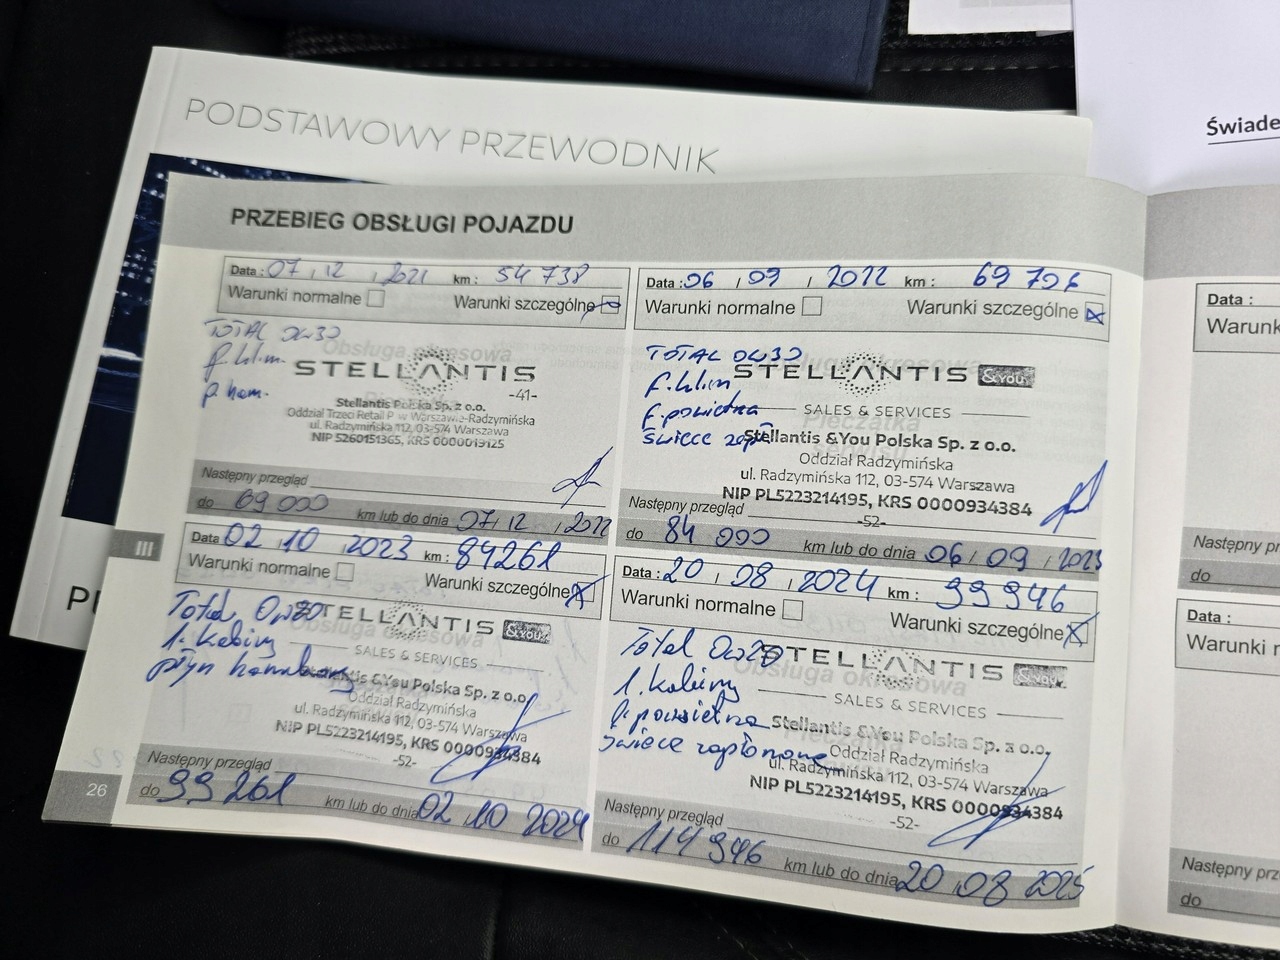 PODSTAWOWY PRZEWODNIK
Świade
PRZEBIEG OBSŁUGI POJAZDU
Data : 07 / 12 / 2021 km : 54 738
Warunki normalne Warunki szczególne
TOTAL 0W30
f. klim.
p. ham.
STELLANTIS
-41-
Stellantis Polska Sp. z o.o.
Oddział Trzeci Retail P w Warszawie-Radzymińska
ul. Radzymińska 112, 03-574 Warszawa
NIP 5260151365, KRS 0000019125
Następny przegląd
do 69 000 km lub do dnia 07 / 12 / 2022
Data : 06 / 09 / 2022 km : 69 706
Warunki normalne Warunki szczególne
TOTAL 0W30
f. klim
f. powietrza
świece zapł
STELLANTIS &YOU
SALES & SERVICES
Stellantis &You Polska Sp. z o.o.
Oddział Radzymińska
ul. Radzymińska 112, 03-574 Warszawa
NIP PL5223214195, KRS 0000934384
-52-
Następny przegląd
do 84 000 km lub do dnia 06 / 09 / 2023
III
Data 02 10 2023 km : 84261
Warunki normalne Warunki szczególne
Total 0W20
f. Kabiny
płyn hamulcowy
STELLANTIS &YOU
SALES & SERVICES
Stellantis &You Polska Sp. z o.o.
Oddział Radzymińska
ul. Radzymińska 112, 03-574 Warszawa
NIP PL5223214195, KRS 0000934384
-52-
Następny przegląd
do 99 261 km lub do dnia 02 10 2024
Data : 20 / 08 / 2024 km : 99 946
Warunki normalne Warunki szczególne
Total 0W20
f. Kabiny
f. powietrza
świece zapłonowe
STELLANTIS
SALES & SERVICES
Stellantis &You Polska Sp. z o.o.
Oddział Radzymińska
ul. Radzymińska 112, 03-574 Warszawa
NIP PL5223214195, KRS 0000934384
-52-
Następny przegląd
do 114 946 km lub do dnia 20 08 2025
26
Data :
Warunk
Następny pr
do
Data :
Warunki n
Następny prz
do